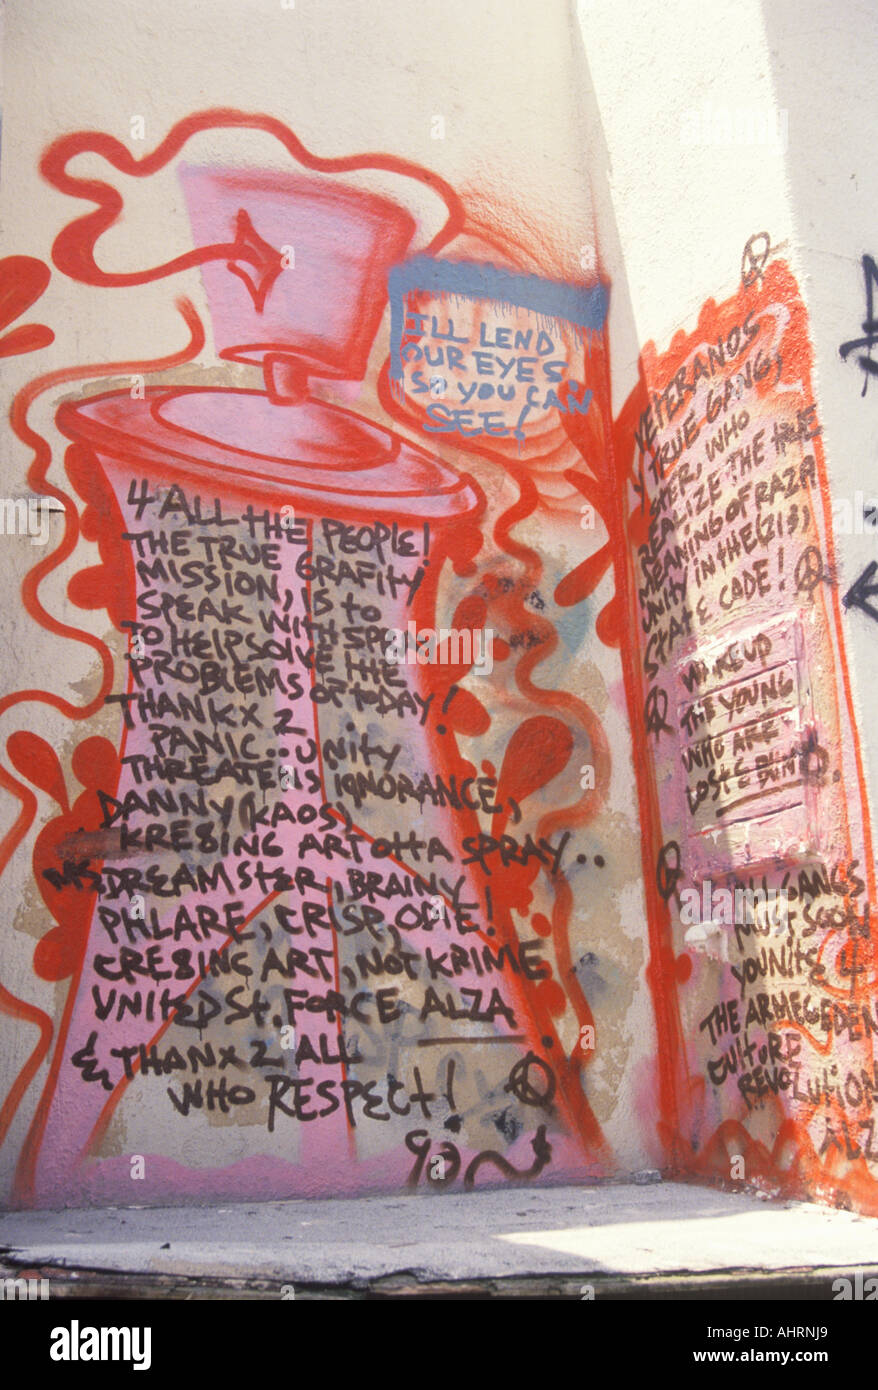 I'LL LEND
OUR EYES
SO YOU CAN
SEE!
4 ALL THE PEOPLE!
THE TRUE GRAFITY
MISSION, IS TO
SPEAK WITH SPRAY
TO HELP SOLVE THE
PROBLEMS OF TODAY!
THANKX 2
PANIC.. UNITY
THREATENS IGNORANCE,
DANNY (KAOS)
KRE8ING ART OTTA SPRAY..
DREAMSTER, BRAINY
PHLARE, CRISP, ODIE!
CRE8INC ART, NOT KRIME
UNITED ST. FORCE ALZA
& THANX 2 ALL
WHO RESPECT!
90
VETERANOS
Y TRUE GANG,
STER, WHO
REALIZE THE TRUE
MEANING OF RAZA
UNITY IN THE (213)
STATE CADE!
WAKEUP
THE YOUNG
WHO ARE
LOST & BLIND
ALL GANGS
MUST SOON
YOUNITE 4
THE ARMEGEDEN
CULTURE
REVOLUTION
ALZ
alamy
Image ID: AHRNJ9
www.alamy.com